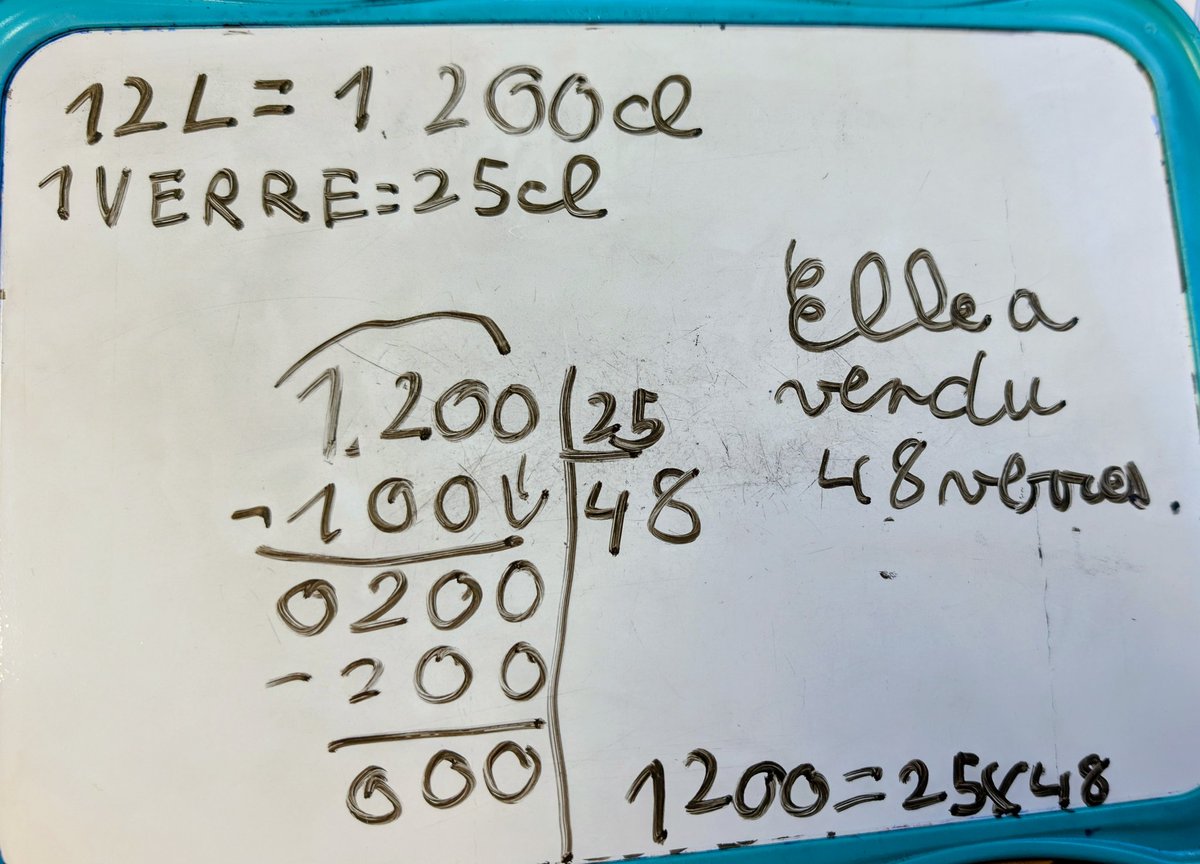 12L = 1 200cl
1 VERRE = 25cl
1.200 | 25
- 100↓ | 48
0200
- 200
000
Elle a
vendu
48 verres.
1200 = 25x48